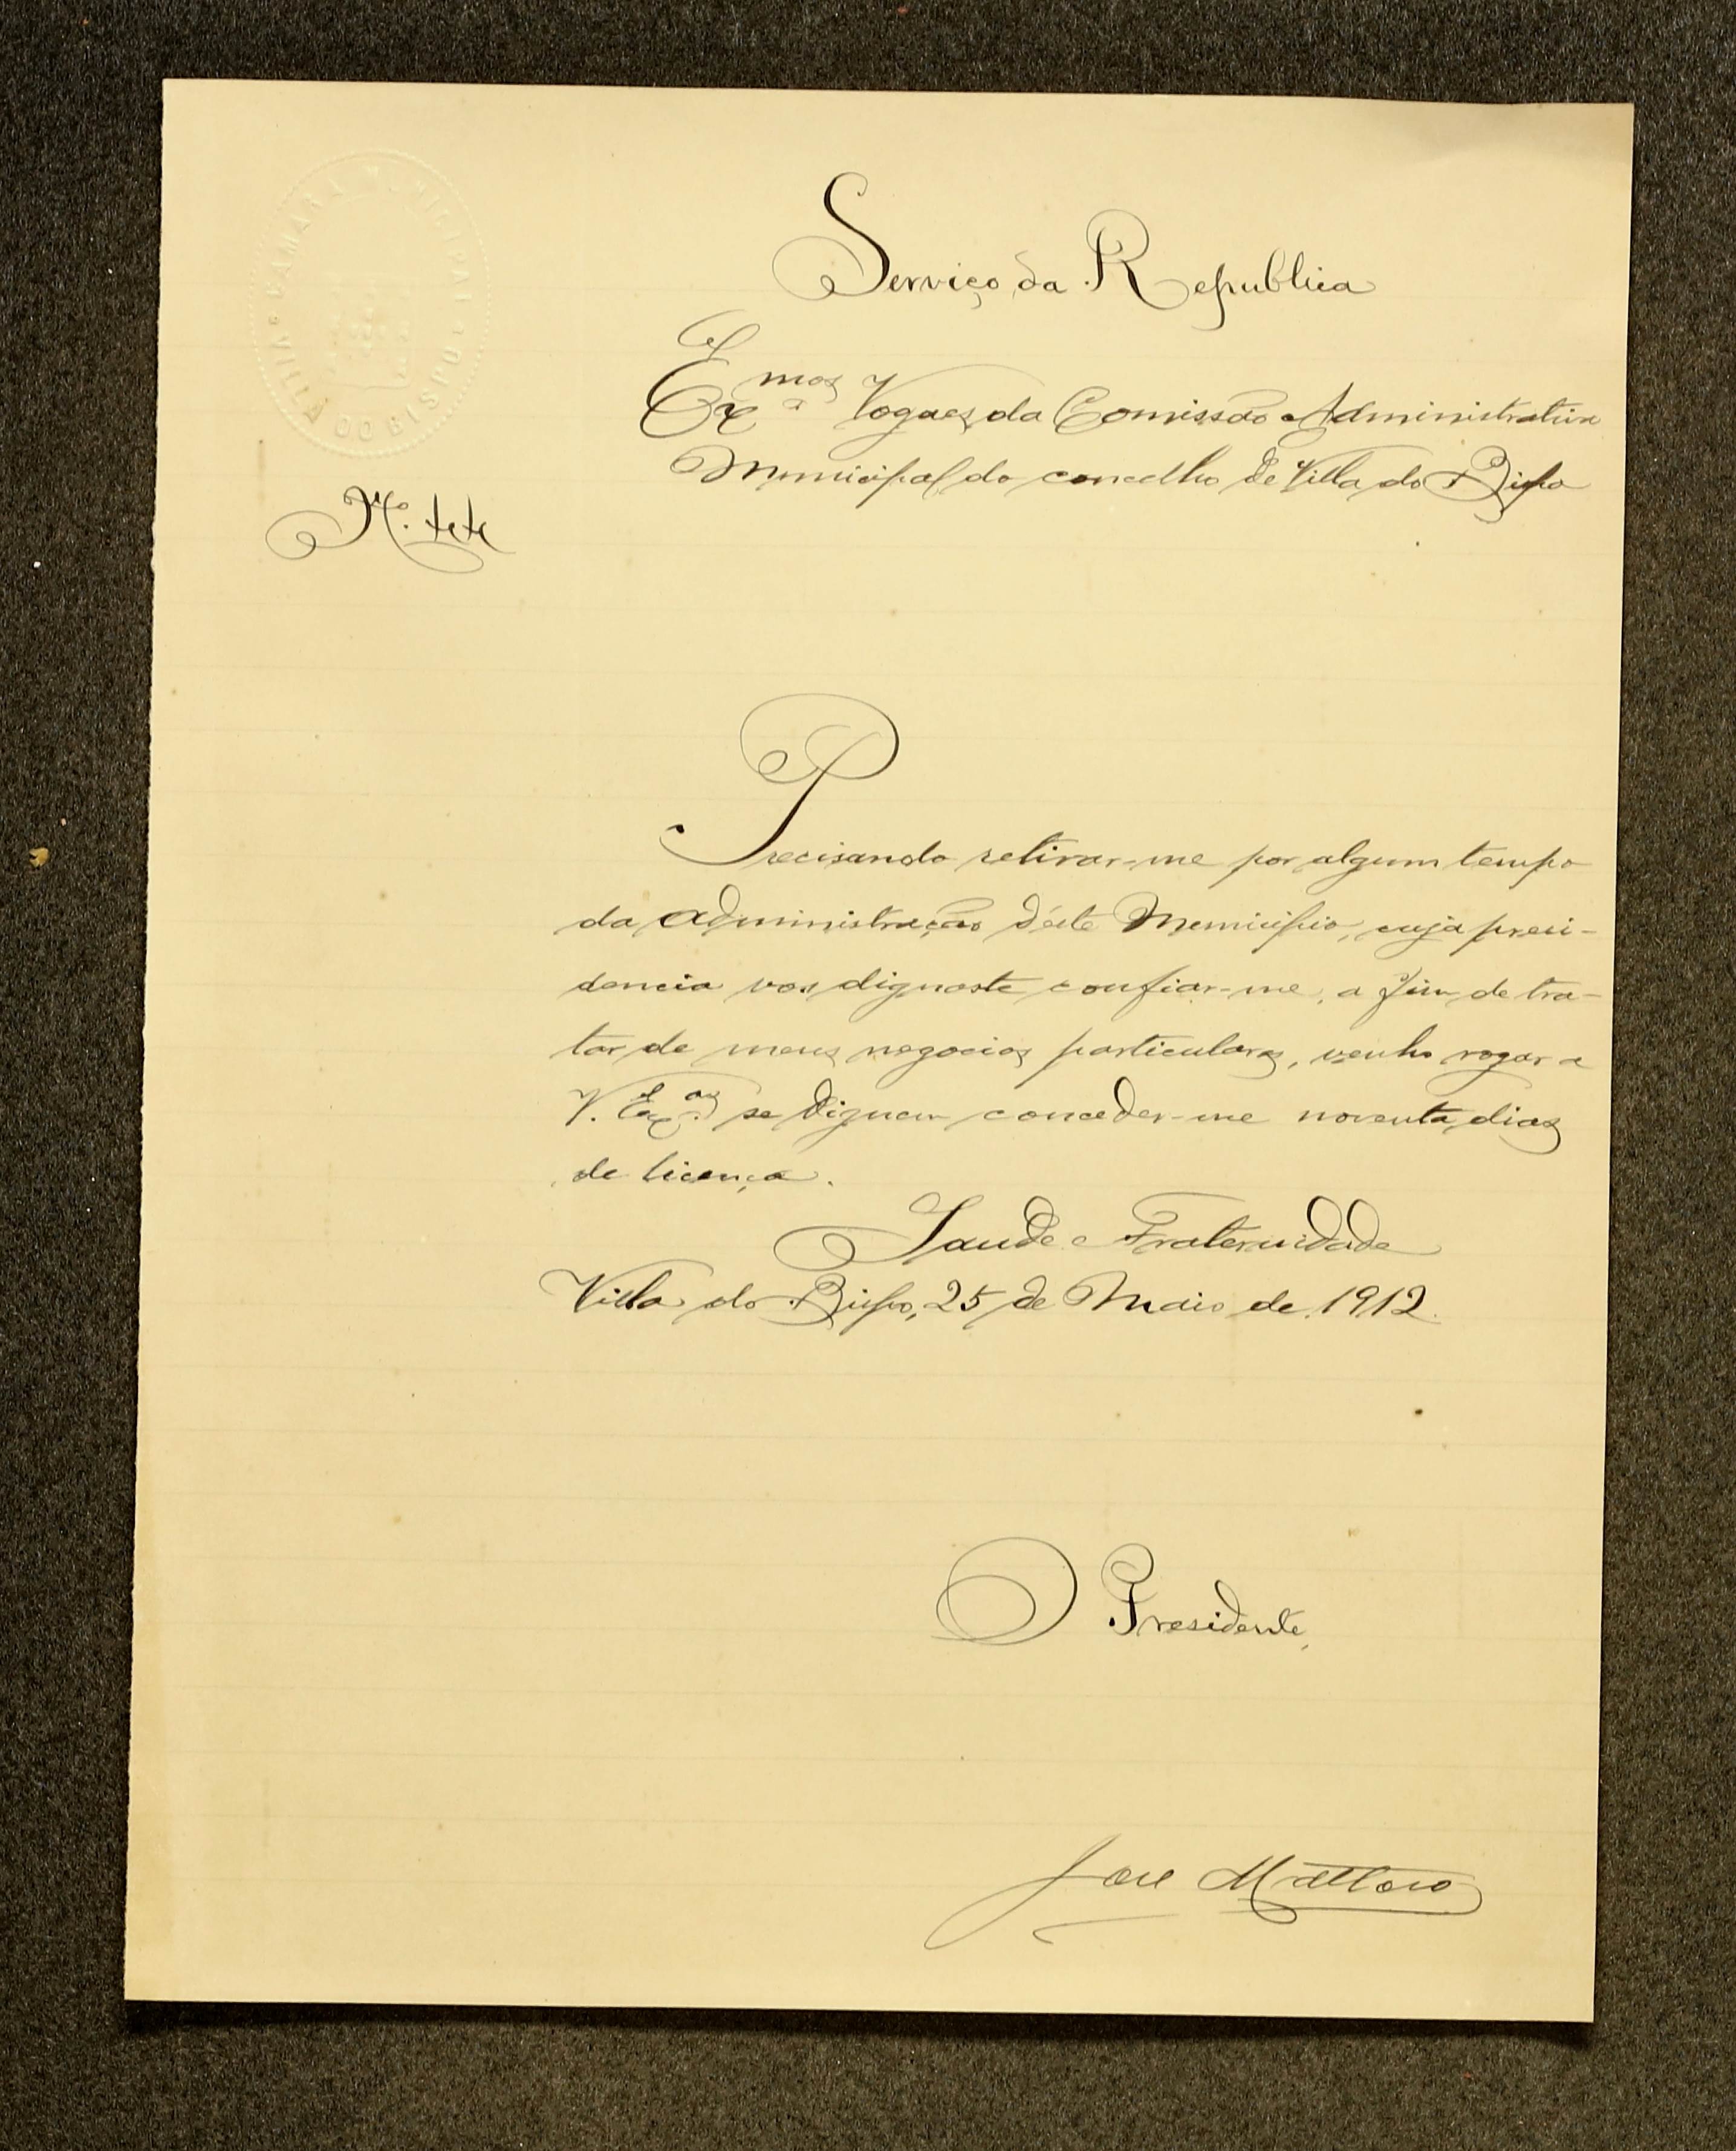 CAMARA MUNICIPAL
VILLA DO BISPO
Serviço da Republica
Ex.mos Vogaes da Comissão Administrativa
Municipal do concelho de Villa do Bispo
N.º
Precisando retirar-me por algum tempo
da administração d'éste Municipio, cuja presi-
dencia vos dignaste confiar-me, a fim de tra-
tar de meus negocios particulares, venho rogar a
V. Ex.as se dignem conceder-me noventa dias
de licença.
Saude e Fraternidade
Villa do Bispo, 25 de Maio de 1912.
O Presidente,
José Mattoso